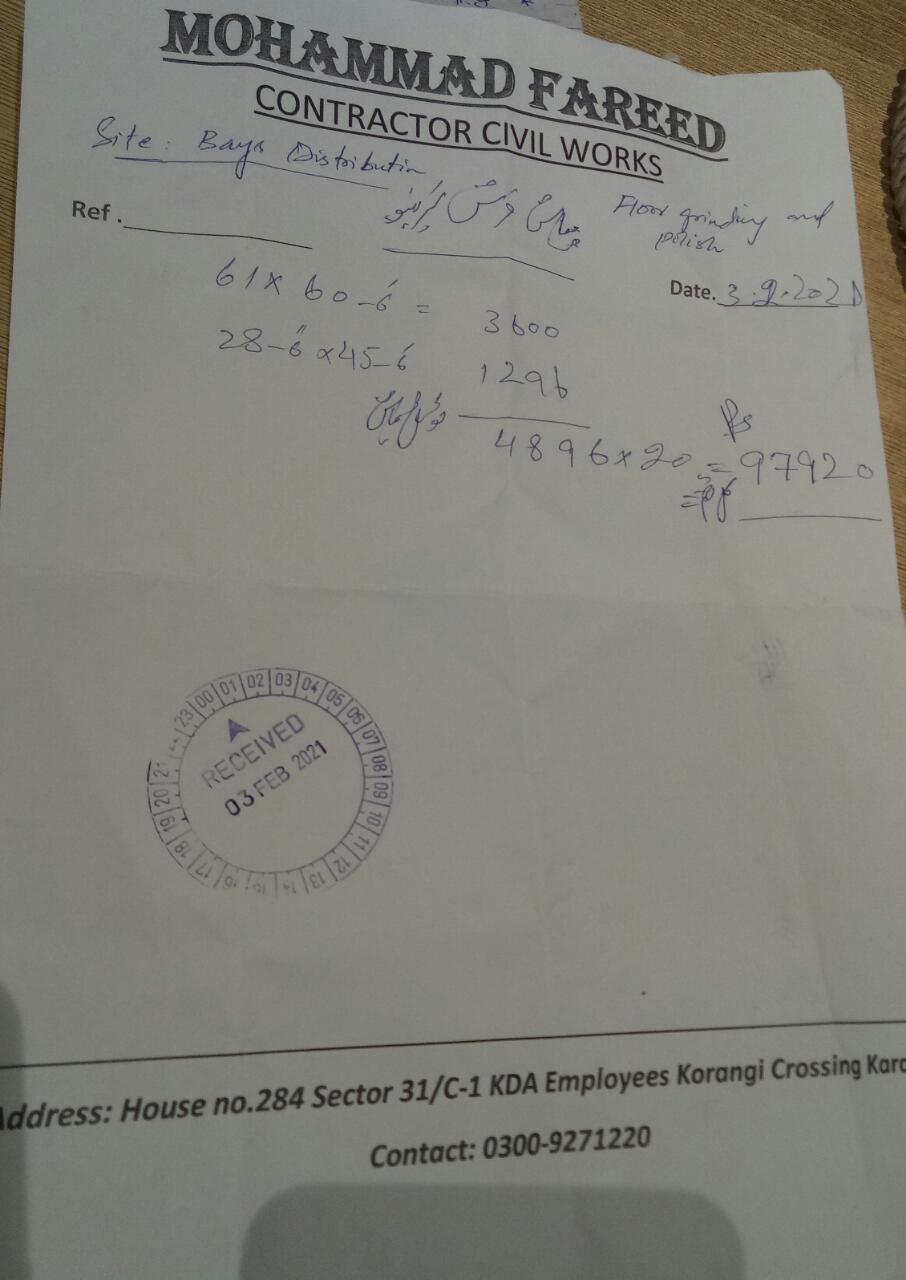 MOHAMMAD FAREED
CONTRACTOR CIVIL WORKS
Site: Bays Distribution
Floor grinding and
polish
Ref.
Date. 3.2.2021
61 x 60-6 = 3600
28-6 x 45-6 1296
4896 x 20 = 97920
Rs
00 01 02 03 04 05 06 07 08 09 10 11 12 13 14 15 16 17 18 19 20 21 23
RECEIVED
03 FEB 2021
Address: House no.284 Sector 31/C-1 KDA Employees Korangi Crossing
Contact: 0300-9271220